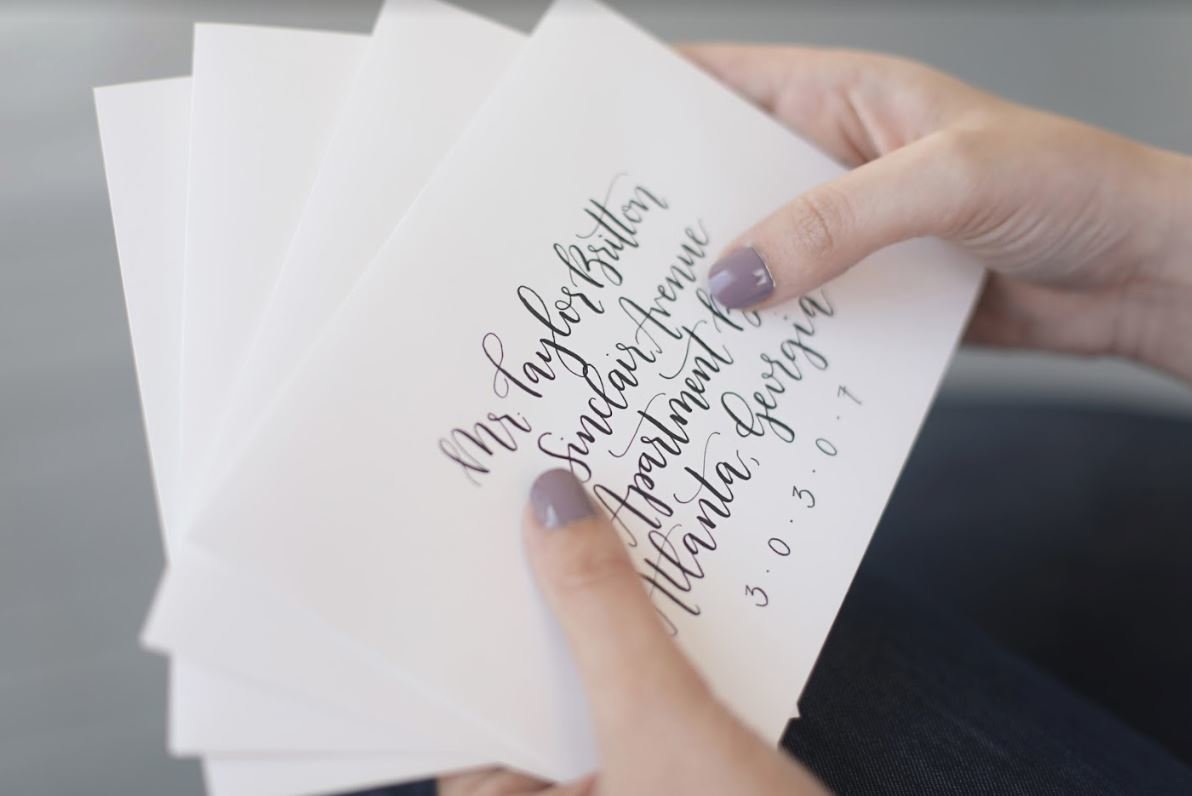 Mr. Taylor Britton
Sinclair Avenue
Apartment
Atlanta, Georgia
3.0.3.0.7